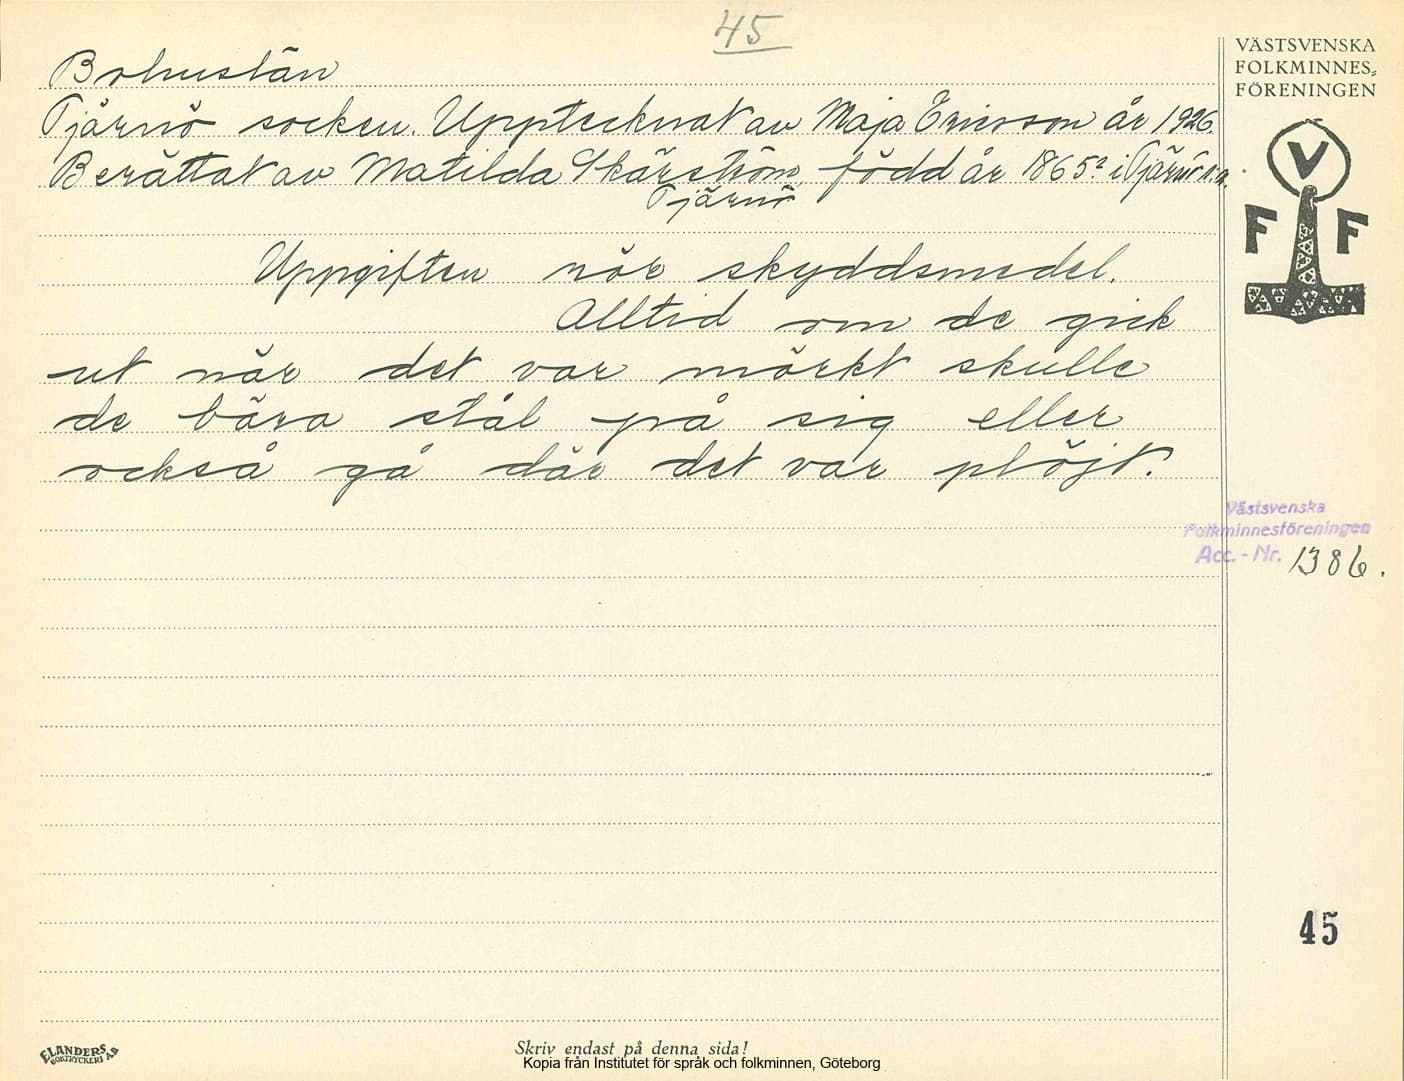 45
Bohuslän
Tjärnö socken. Upptecknat av Maja Ericsson år 1926.
Berättat av Matilda Skärström, född år 1865? i Tjärnö s:n.
Tjärnö
Uppgiften rör skyddsmedel.
Alltid om de gick
ut när det var mörkt skulle
de bära stål på sig eller
också gå där det var plöjt.
VÄSTSVENSKA
FOLKMINNES-
FÖRENINGEN
V
F F
Västsvenska
Folkminnesföreningen
Acc.-Nr. 1386.
45
ELANDERS
BOKTRYCKERI A.B
Skriv endast på denna sida!
Kopia från Institutet för språk och folkminnen, Göteborg